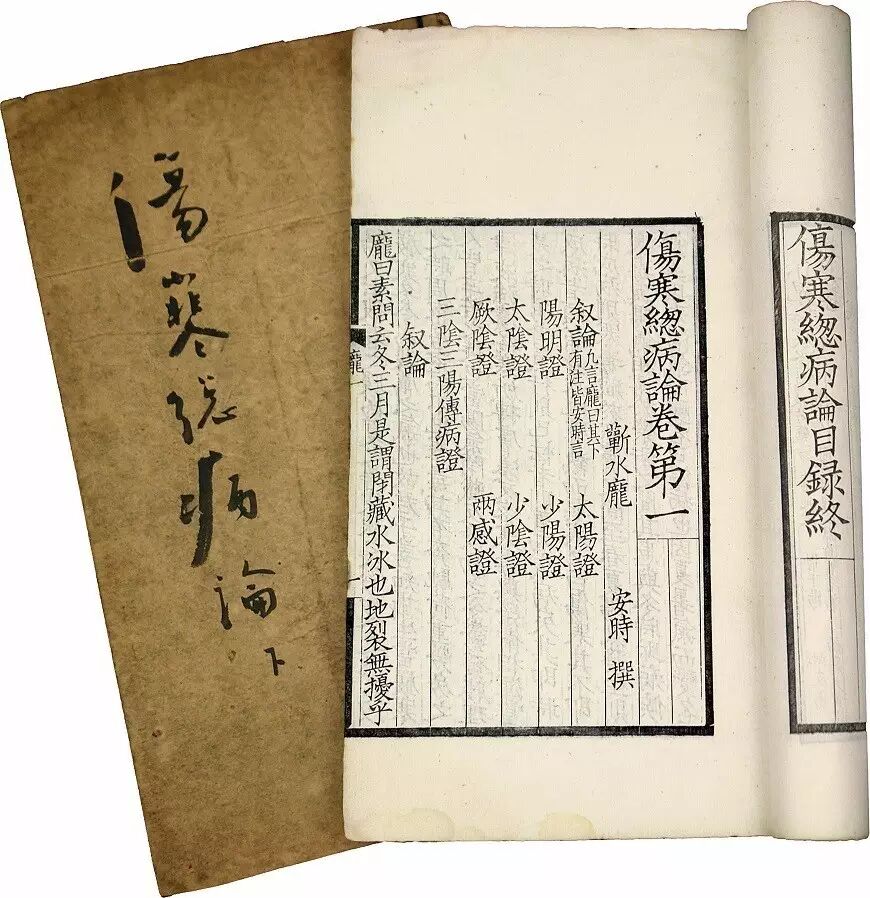 傷寒緫病論目録終
傷寒緫病論卷第一
蘄水龐 安時 撰
叙論 凢言龐曰其下有注皆安時言 太陽證
陽明證 少陽證
太陰證 少陰證
厥陰證 兩感證
三陰三陽傳病證
叙論
龐曰素問云冬三月是謂閇藏水冰也地裂無擾乎
龐一
傷寒総病論下